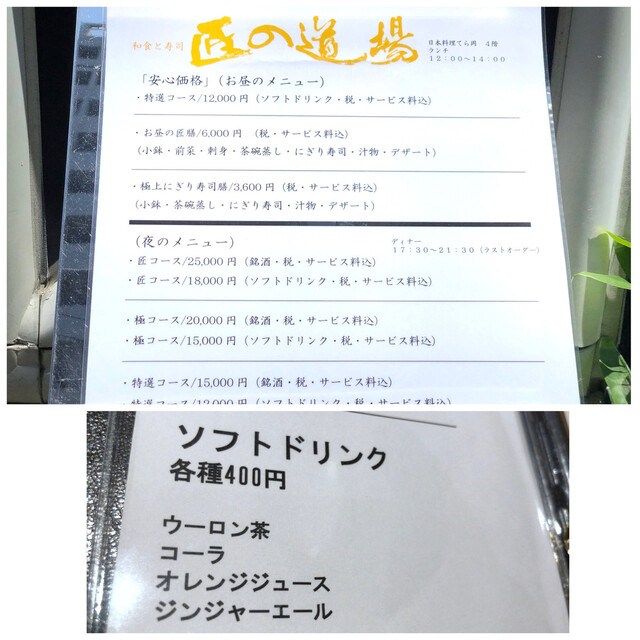 和食と寿司 匠の道場
日本料理てら岡 4階
ランチ
12:00〜14:00
「安心価格」(お昼のメニュー)
・特選コース/12,000円(ソフトドリンク・税・サービス料込)
・お昼の匠膳/6,000円 (税・サービス料込)
(小鉢・前菜・刺身・茶碗蒸し・にぎり寿司・汁物・デザート)
・極上にぎり寿司膳/3,600円(税・サービス料込)
(小鉢・茶碗蒸し・にぎり寿司・汁物・デザート)
(夜のメニュー)
ディナー
17:30〜21:30(ラストオーダー)
・匠コース/25,000円(銘酒・税・サービス料込)
・匠コース/18,000円(ソフトドリンク・税・サービス料込)
・極コース/20,000円(銘酒・税・サービス料込)
・極コース/15,000円(ソフトドリンク・税・サービス料込)
・特選コース/15,000円(銘酒・税・サービス料込)
・特選コース/12,000円(ソフトドリンク・税・サービス料込)
ソフトドリンク
各種400円
ウーロン茶
コーラ
オレンジジュース
ジンジャーエール